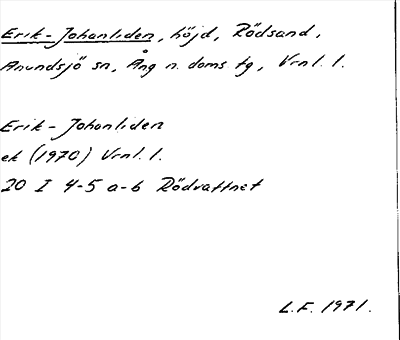 Erik-Johanliden, höjd, Rödsand,
Anundsjö sn, Ång n. doms tg, Vrnl. l.
Erik-Johanliden
ek (1970) Vrnl. l.
20 I 4-5 a-b Rödvattnet
L.F. 1971.